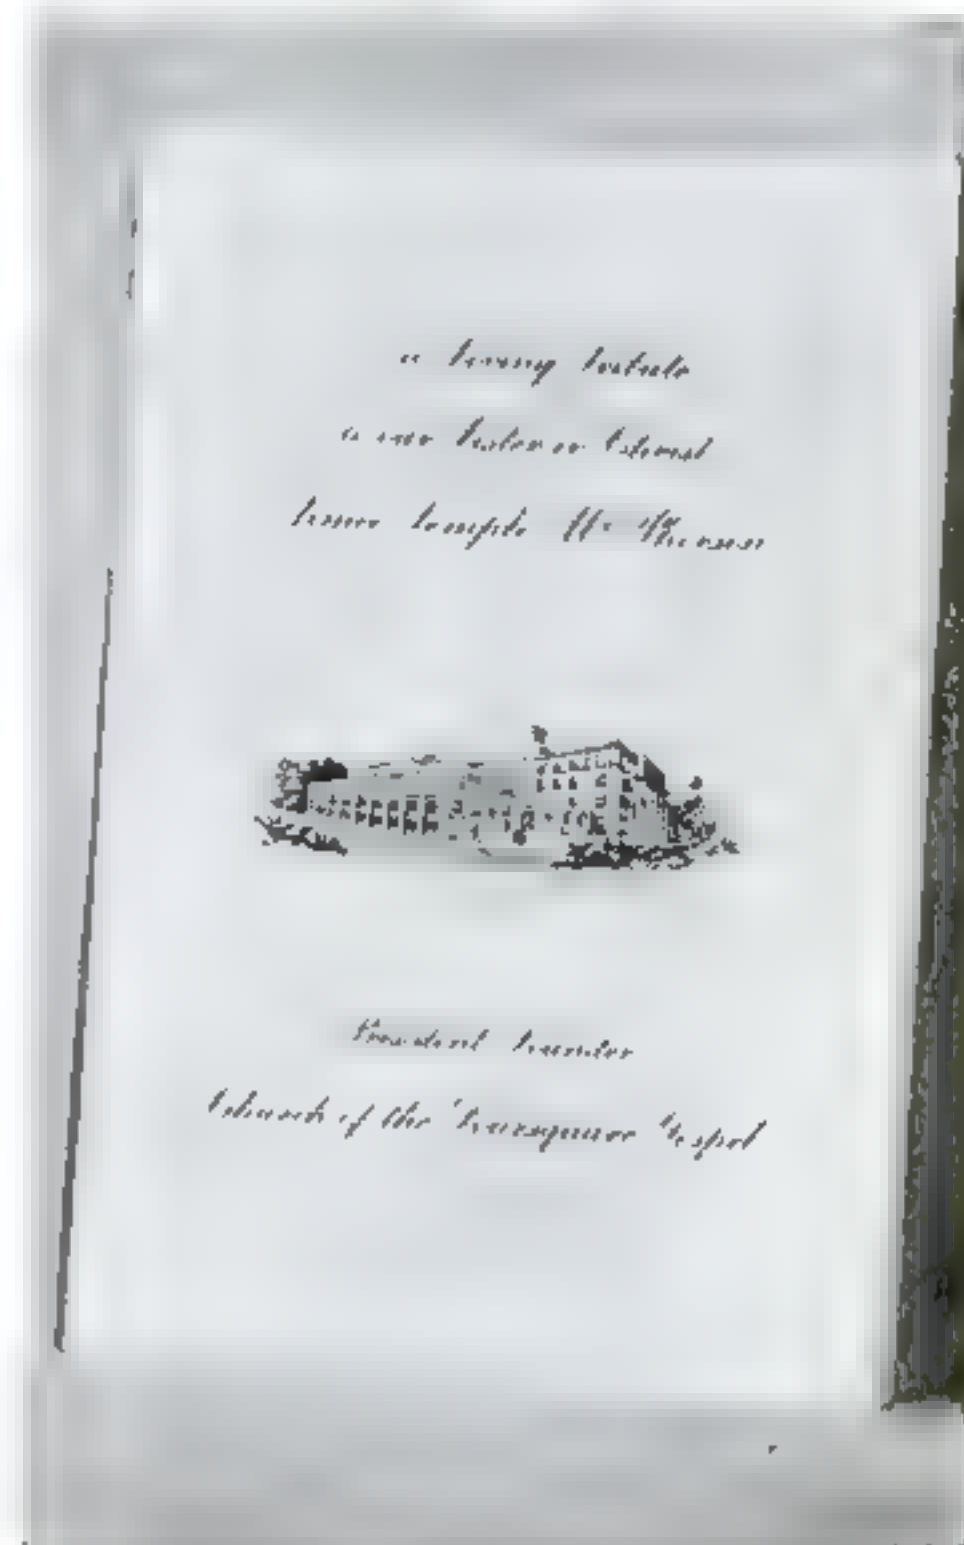 a Loving Tribute
Aimee Semple Mc Pherson
President Founder
Church of the Foursquare Gospel